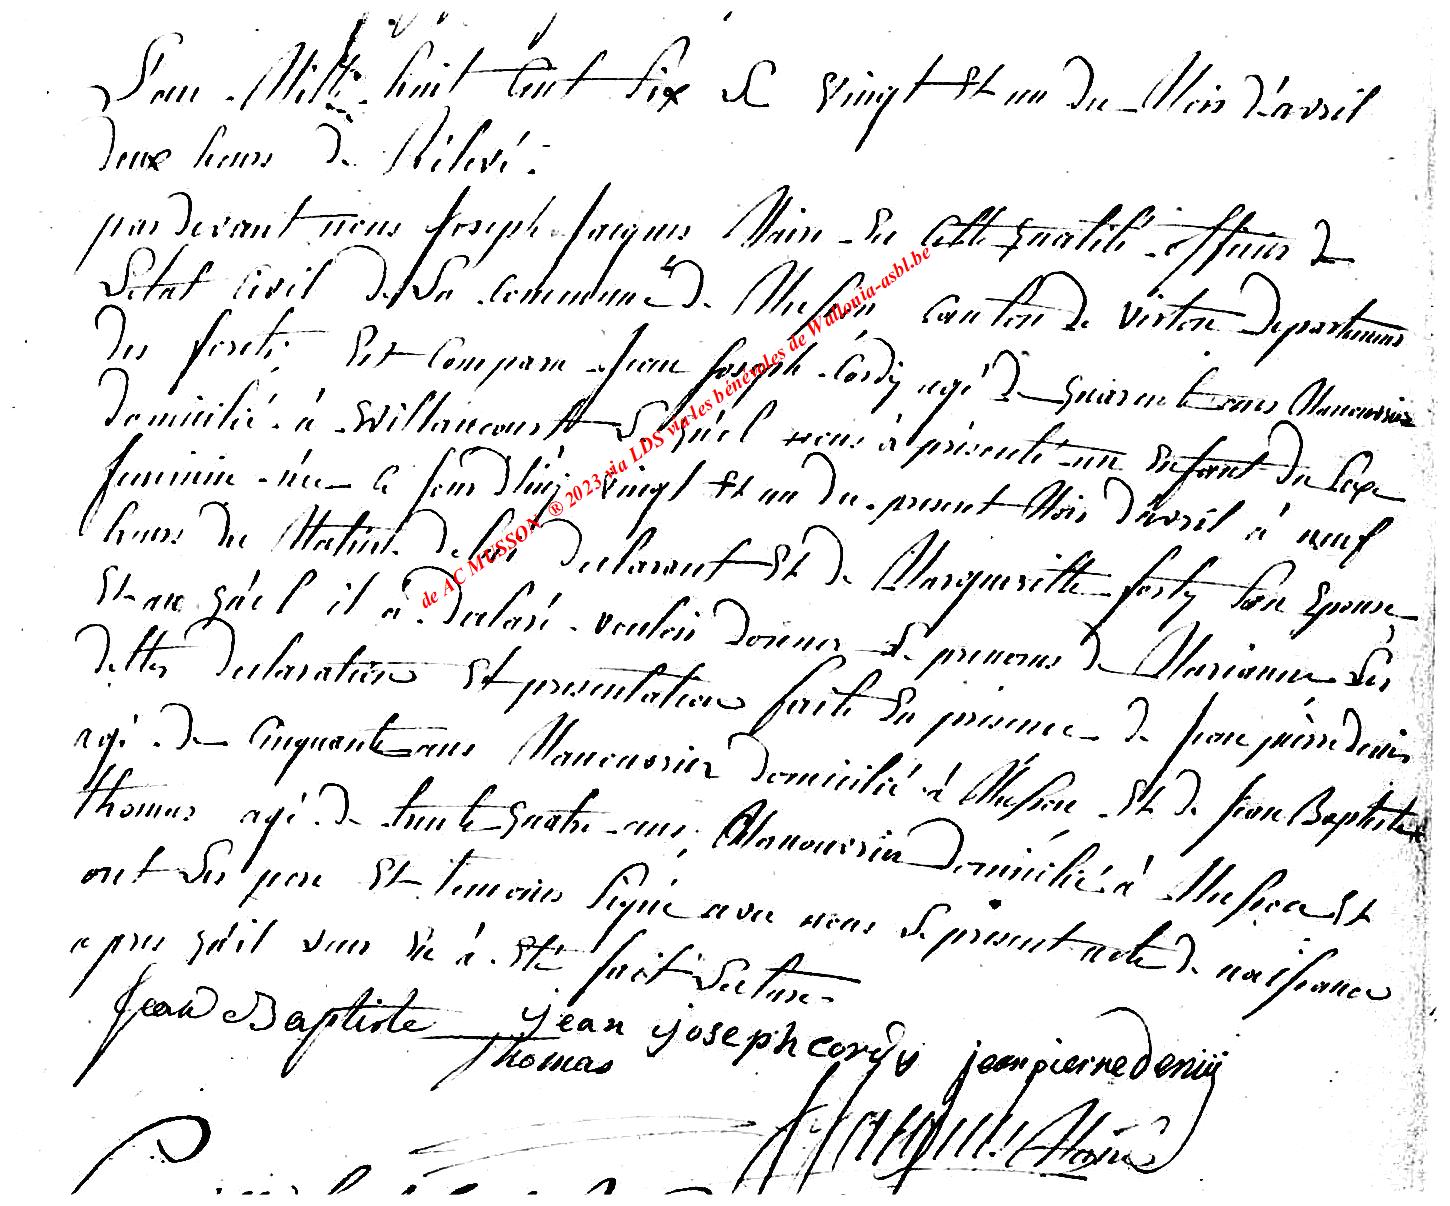 L'an Mille huit Cent Six Le vingt Et un du Mois d'avril
deux heurs de Rélevé.
pardevant nous Joseph Jacques Maire En Cette qualité officier de
L'etat Civil de La Commune de Musson Canton de virton departement
des forets Est Comparu Jean Joseph Cordy agé de quarente ans Manouvrier
domicilié à Willancourt Lequel nous à présenté un Enfant du Sexe
feminin née Ce Jourdhuy vingt Et un du present Mois d'avril à neuf
heurs du Matin de lui declarant Et de Margueritte Son Epouse
Et au quel il à declaré vouloir donner Le prenoms de Marianne Les
dittes declaration Et presentation faite En présence de Jean pierre denis
agé de Cinquante ans Manouvrier domicilié à Musson Et de Jean Baptiste
thomas agé de trente quatre ans Manouvrier Domicilié à Musson Et
ont Les pere Et temoins Signé avec nous Le present acte de naissance
apres qu'il leur En à Eté fait Lecture
Jean Baptiste jean joseph cordy jean pierre denis
Thomas
Jacques Maire
de AC MUSSON ® 2023 via LDS via les bénévoles de Wallonia-asbl.be